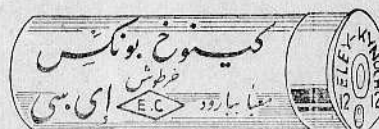 كينوخ بونكس
خرطوش
معبأ ببارود E.C إى سى
ELEY-KYNOCH
12